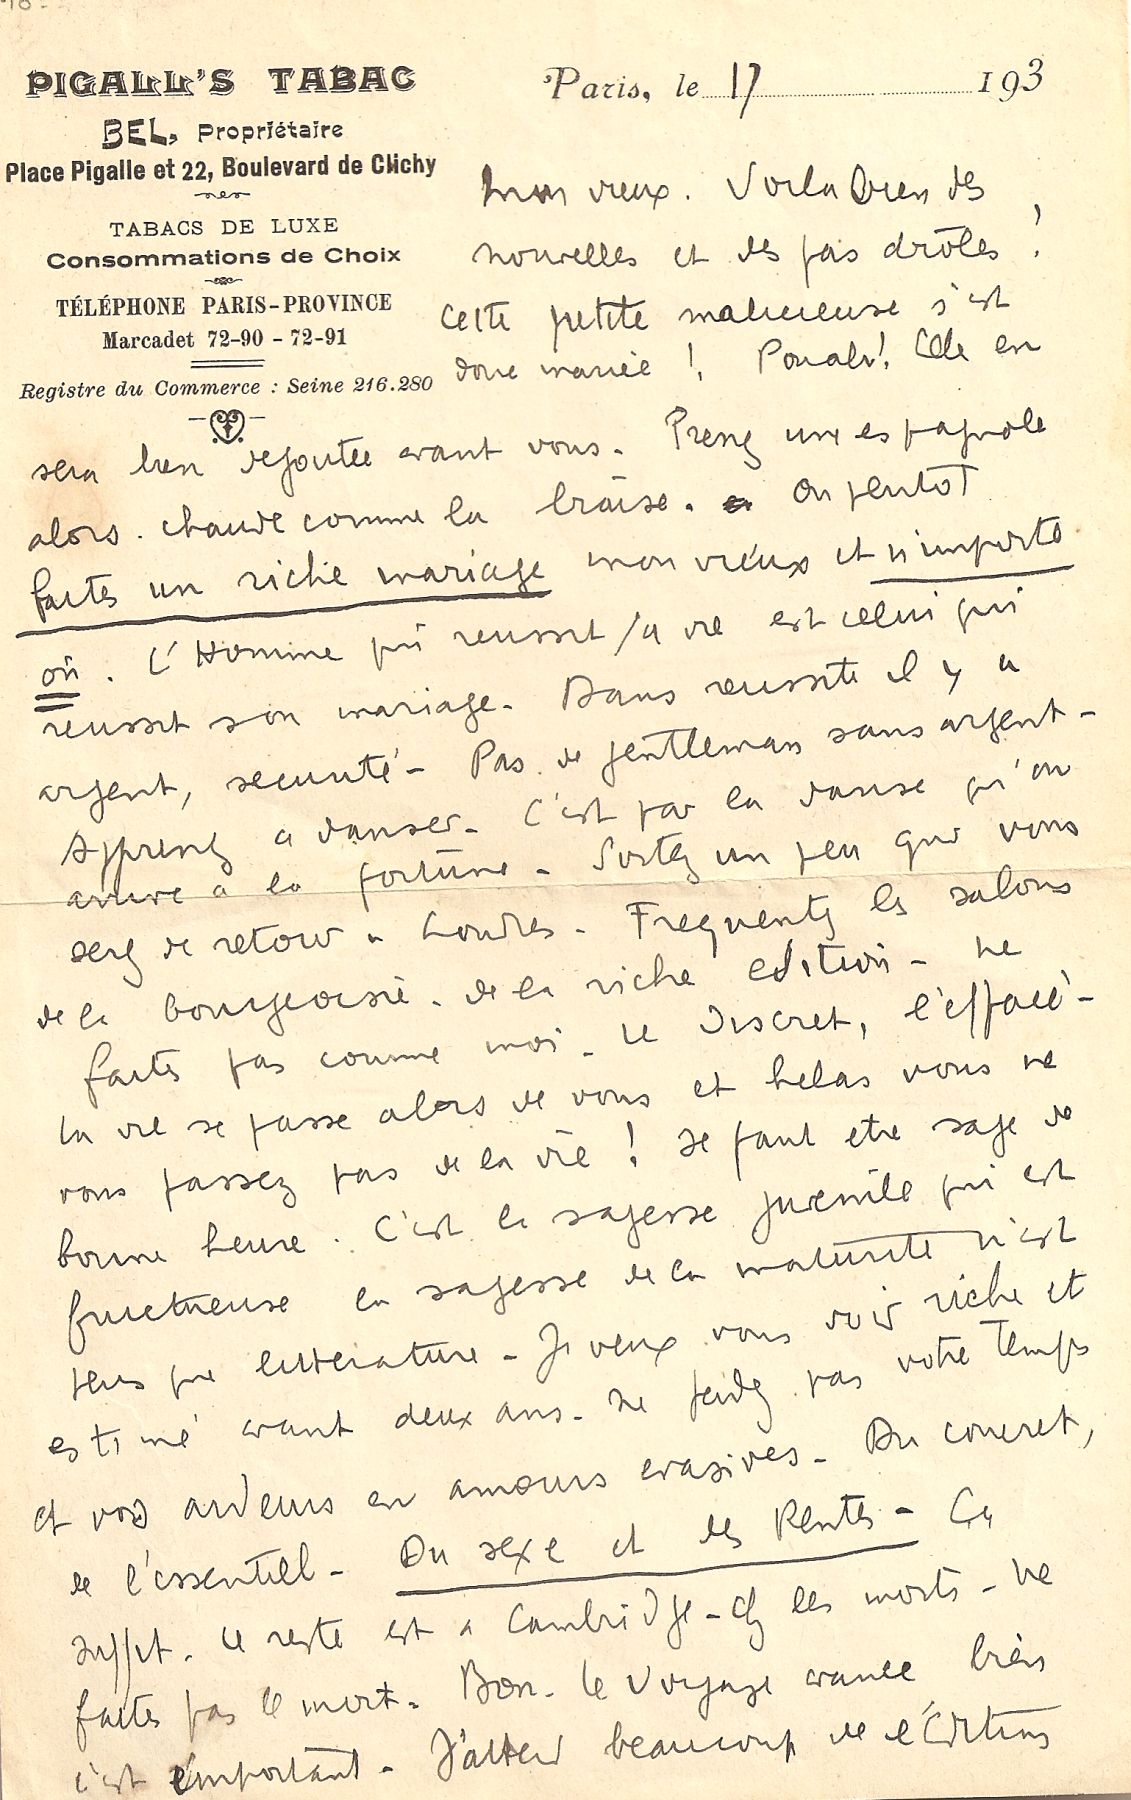 PIGALL'S TABAC
BEL, Propriétaire
Place Pigalle et 22, Boulevard de Clichy
TABACS DE LUXE
Consommations de Choix
TÉLÉPHONE PARIS-PROVINCE
Marcadet 72-90 - 72-91
Registre du Commerce : Seine 216.280
Paris, le 17 193
Mon vieux. Voila bien des
nouvelles et des pas drôles !
Cette petite malicieuse s'est
donc mariée ! Pouah ! Elle en
sera bien degoutée avant vous. Prenez une espagnole
alors. chaude comme la braise. On plutot
faites un riche mariage mon vieux et n'importe
où. L'Homme qui reussit sa vie est celui qui
reussit son mariage. Dans reussite il y a
argent, securité - Pas de gentleman sans argent -
Apprenez a danser - C'est par la danse qu'on
arrive a la fortune - Sortez un peu que vous
serez de retour a Londres - Frequentez les salons
de la bourgeoisie - de la riche edition - ne
faites pas comme moi - le Discret, l'effacé -
la vie se passe alors de vous et helas vous ne
vous passez pas de la vie ! Il faut etre sage de
bonne heure. C'est la sagesse juvenile qui est
fructueuse la sagesse de la maturité n'est
que litterature - Je veux vous voir riche et
estimé avant deux ans. Ne perdez pas votre temps
et vos ardeurs en amours evasives - Du concret,
de l'essentiel - Du sexe et des Rentes - Ça
suffit. Le reste est a Cambridge - chez les morts - Ne
faites pas le mort. Bon. Le Voyage avance bien
c'est important - J'attend beaucoup de l'Edition